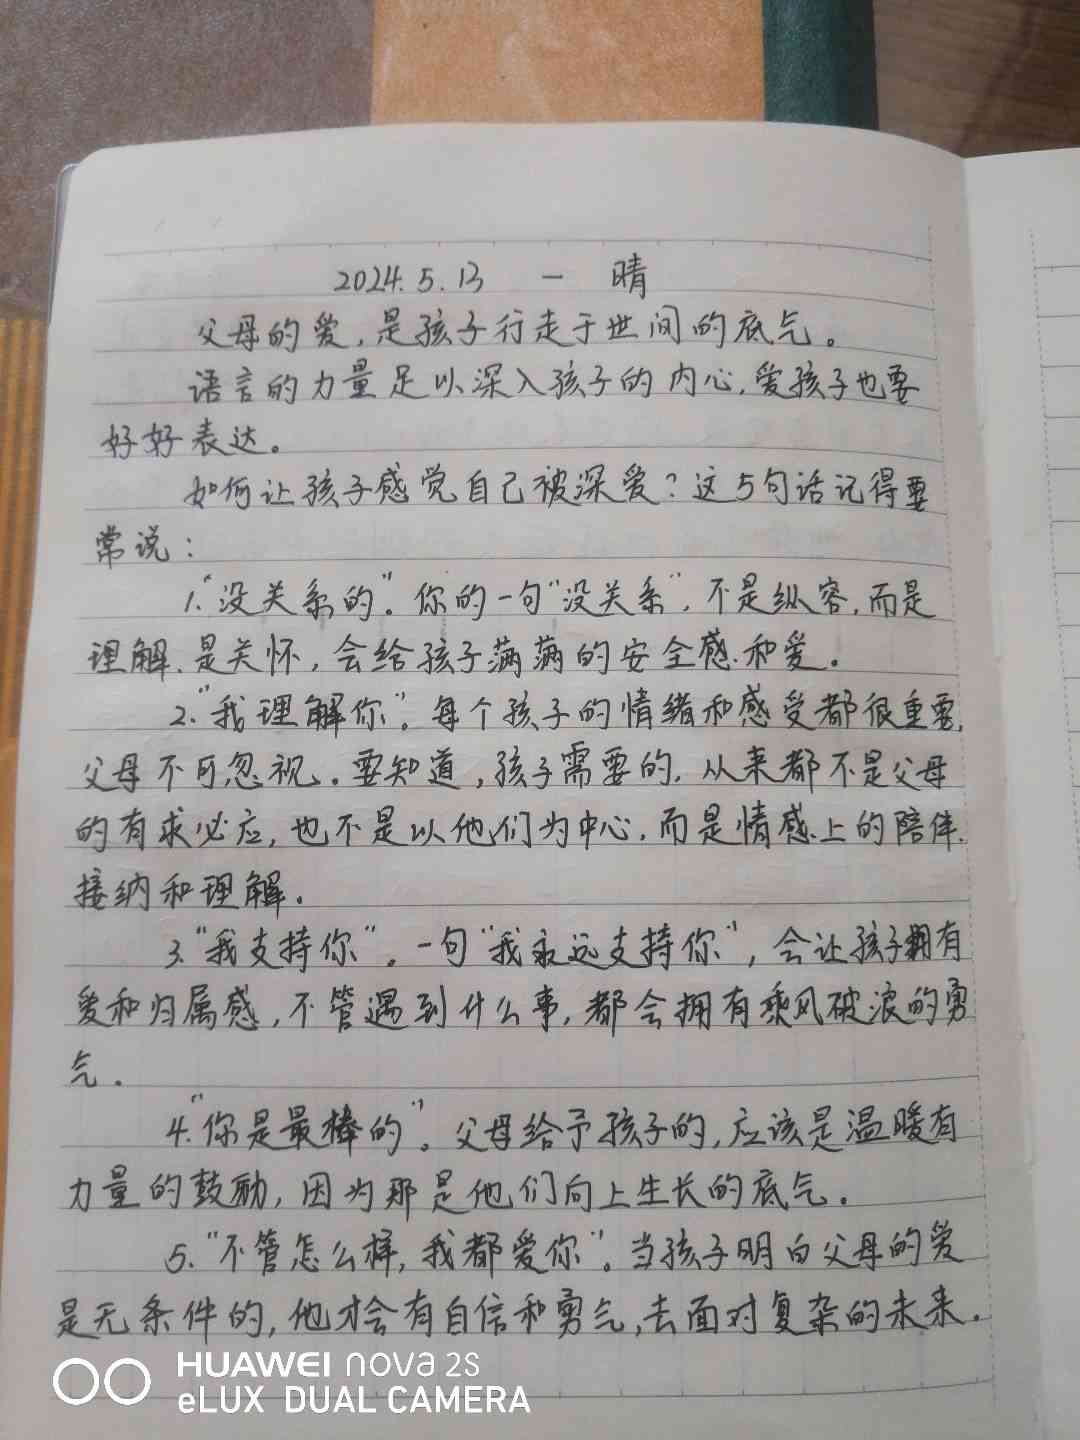 2024.5.13 一 晴
父母的爱,是孩子行走于世间的底气。
语言的力量足以深入孩子的内心,爱孩子也要
好好表达。
如何让孩子感觉自己被深爱?这5句话记得要
常说:
1."没关系的"。你的一句"没关系",不是纵容,而是
理解、是关怀,会给孩子满满的安全感和爱。
2."我理解你"。每个孩子的情绪和感受都很重要,
父母不可忽视。要知道,孩子需要的,从来都不是父母
的有求必应,也不是以他们为中心,而是情感上的陪伴、
接纳和理解。
3."我支持你"。一句"我永远支持你",会让孩子拥有
爱和归属感,不管遇到什么事,都会拥有乘风破浪的勇
气。
4."你是最棒的"。父母给予孩子的,应该是温暖有
力量的鼓励,因为那是他们向上生长的底气。
5."不管怎么样,我都爱你"。当孩子明白父母的爱
是无条件的,他才会有自信和勇气,去面对复杂的未来。
HUAWEI nova 2S
eLUX DUAL CAMERA